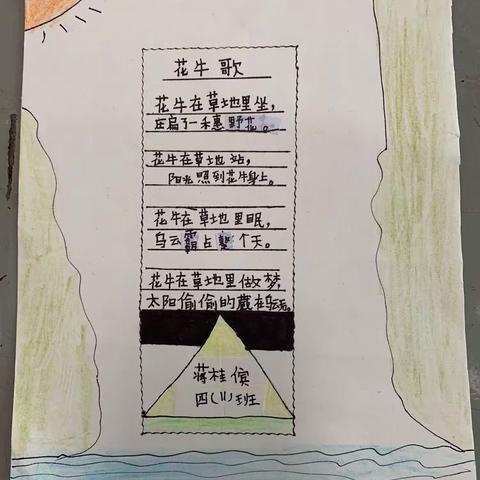 花牛歌
花牛在草地里坐，
压扁了一禾惠野花。
花牛在草地站，
阳光照到花牛身上。
花牛在草地里眠，
乌云霸占整个天。
花牛在草地里做梦，
太阳偷偷的藏在乌云后。
蒋桂傧
四(11)班